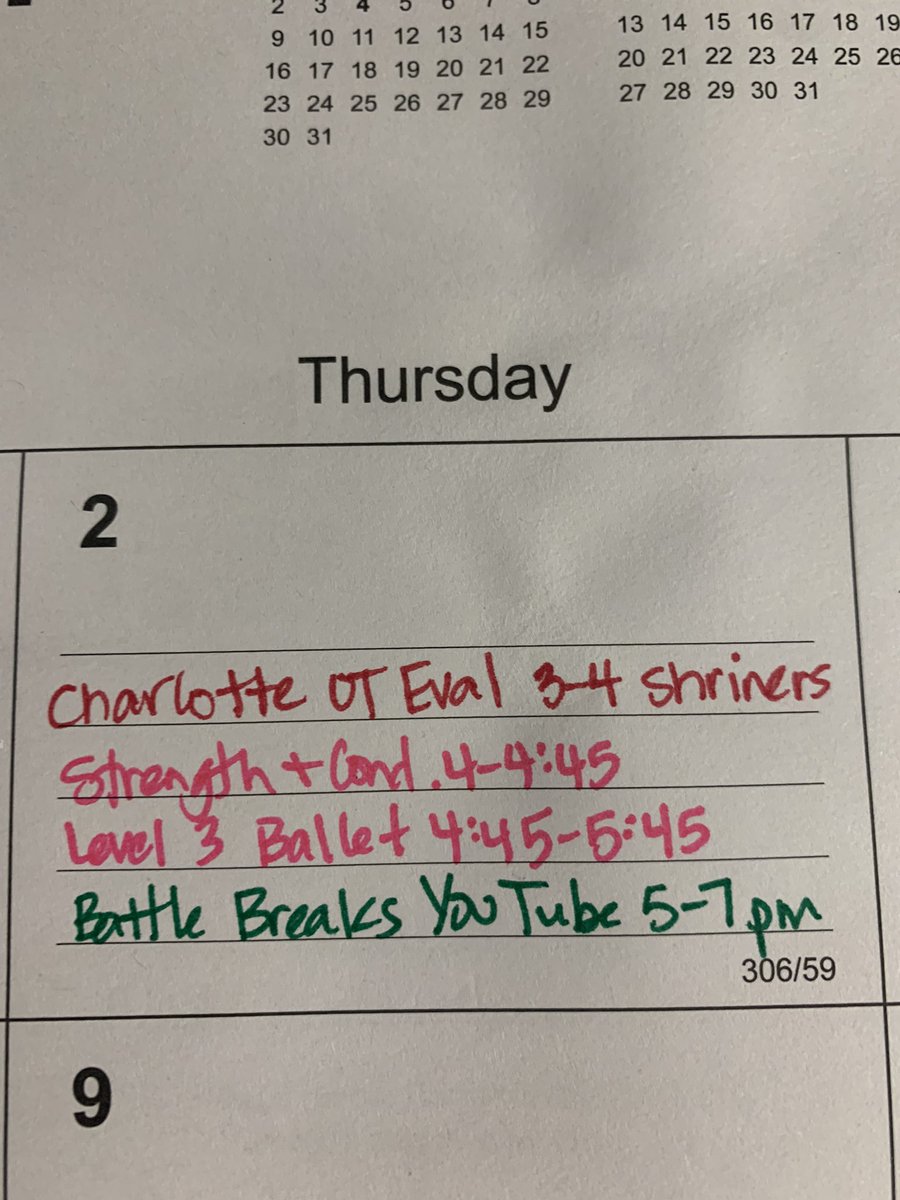 2 3 4 5 6 7 8
9 10 11 12 13 14 15
16 17 18 19 20 21 22
23 24 25 26 27 28 29
30 31
13 14 15 16 17 18 19
20 21 22 23 24 25 26
27 28 29 30 31
Thursday
2
Charlotte OT Eval 3-4 Shriners
Strength + Cond. 4-4:45
Level 3 Ballet 4:45-5:45
Battle Breaks YouTube 5-7pm
306/59
9